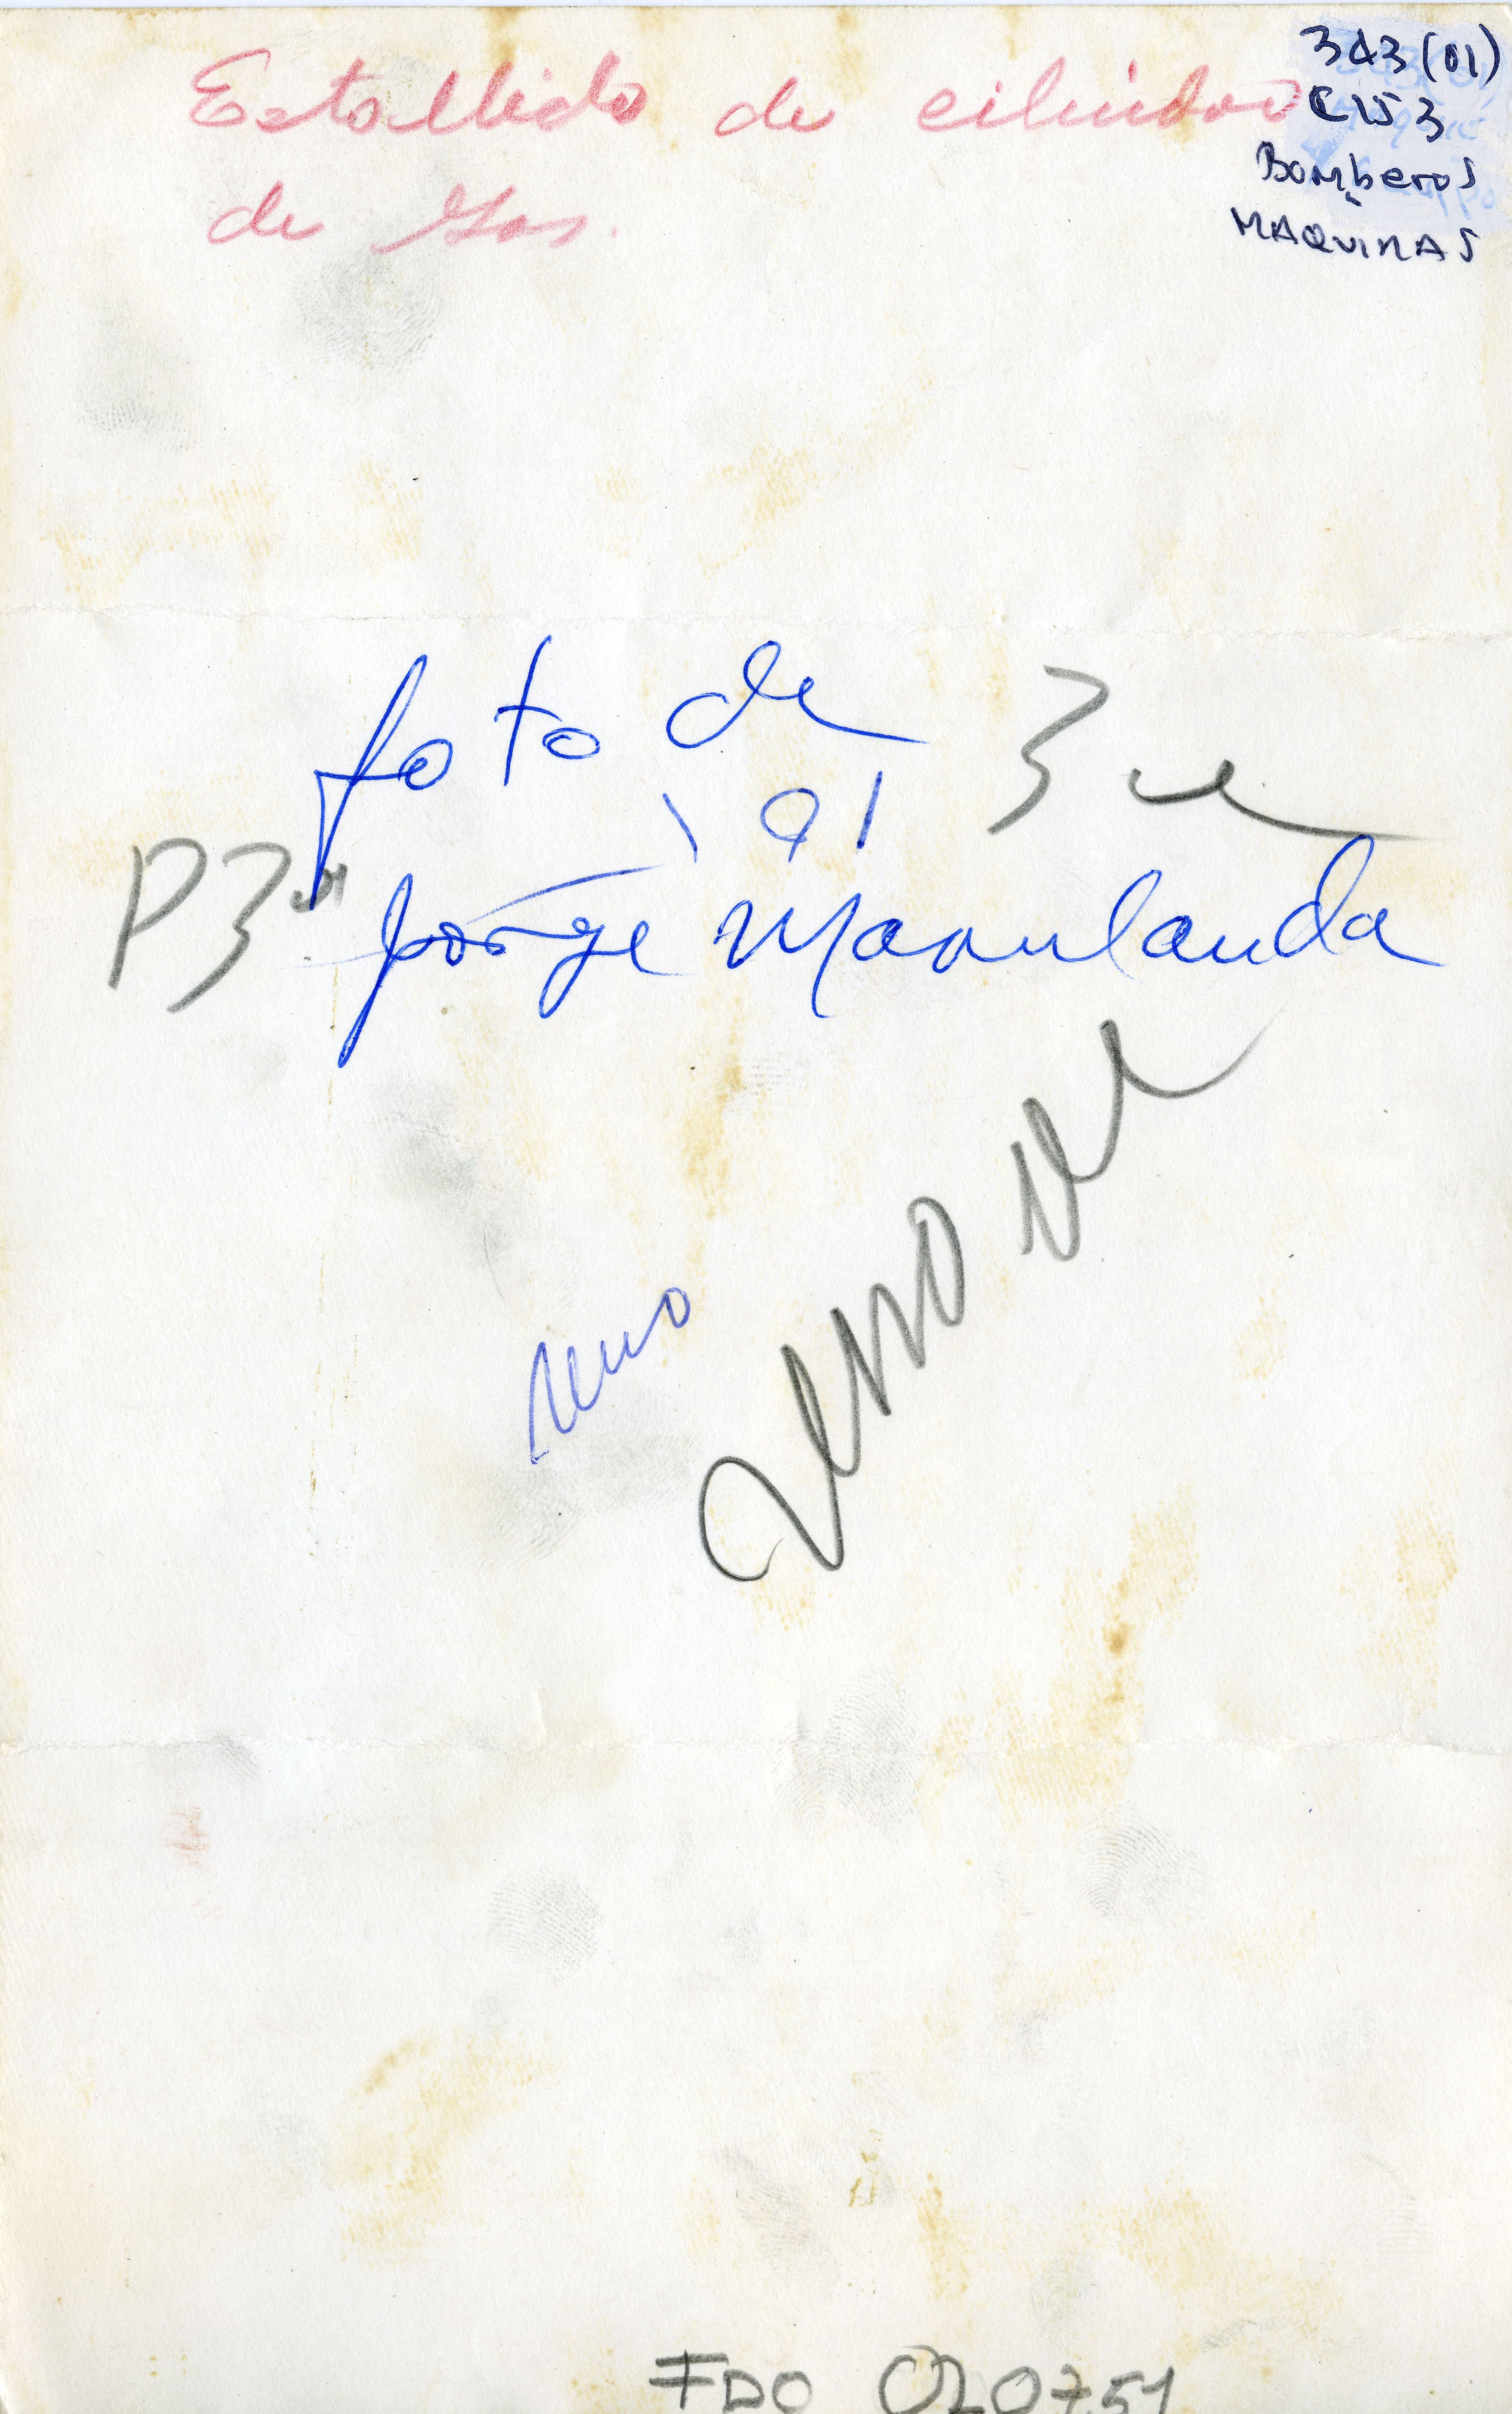 Estallido de cilindro
de Gas.
343(01)
C153
Bomberos
MAQUINAS
foto de
3 u
P3
Jorge Marulanda
FDO 020751